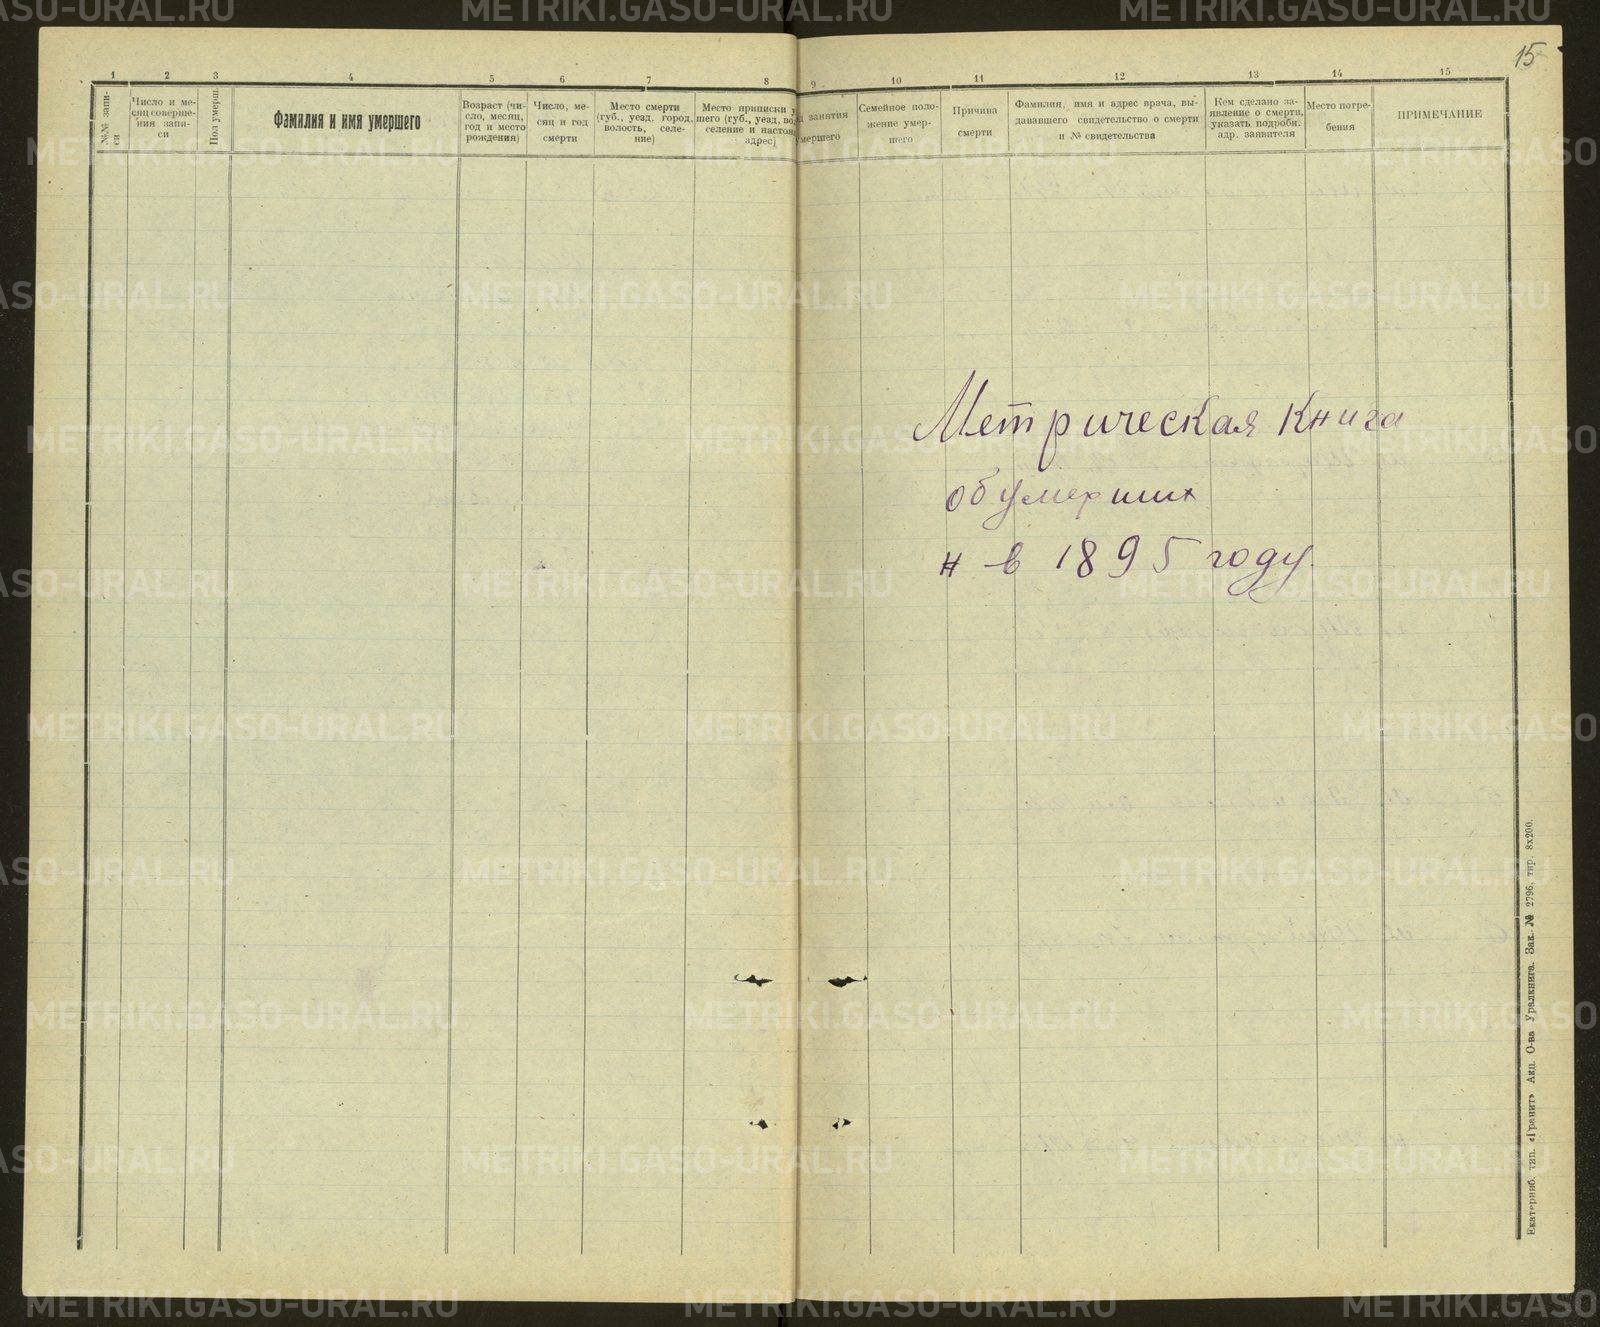 15
1 2 3 4 5 6 7 8 9 10 11 12 13 14 15
№№ запи-
си
Число и ме-
сяц соверше-
ния запи-
си
Пол умерш.
Фамилия и имя умершего
Возраст (чи-
сло, месяц,
год и место
рождения)
Число, ме-
сяц и год
смерти
Место смерти
(губ., уезд, город,
волость, селе-
ние)
Место приписки у
шего (губ., уезд, во
селение и настоя
адрес)
д занятия
умершего
Семейное поло-
жение умер-
шего
Причина
смерти
Фамилия, имя и адрес врача, вы-
дававшего свидетельство о смерти
и № свидетельства
Кем сделано за-
явление о смерти,
указать подробн.
адр. заявителя
Место погре-
бения
ПРИМЕЧАНИЕ
Метрическая Книга
об умерших
н в 1895 году.
Екатеринб. тип. «Гранит» Акп. О-ва Уралкнига. Зак. № 2796, тир. 8х200.
METRIKI.GASO-URAL.RU